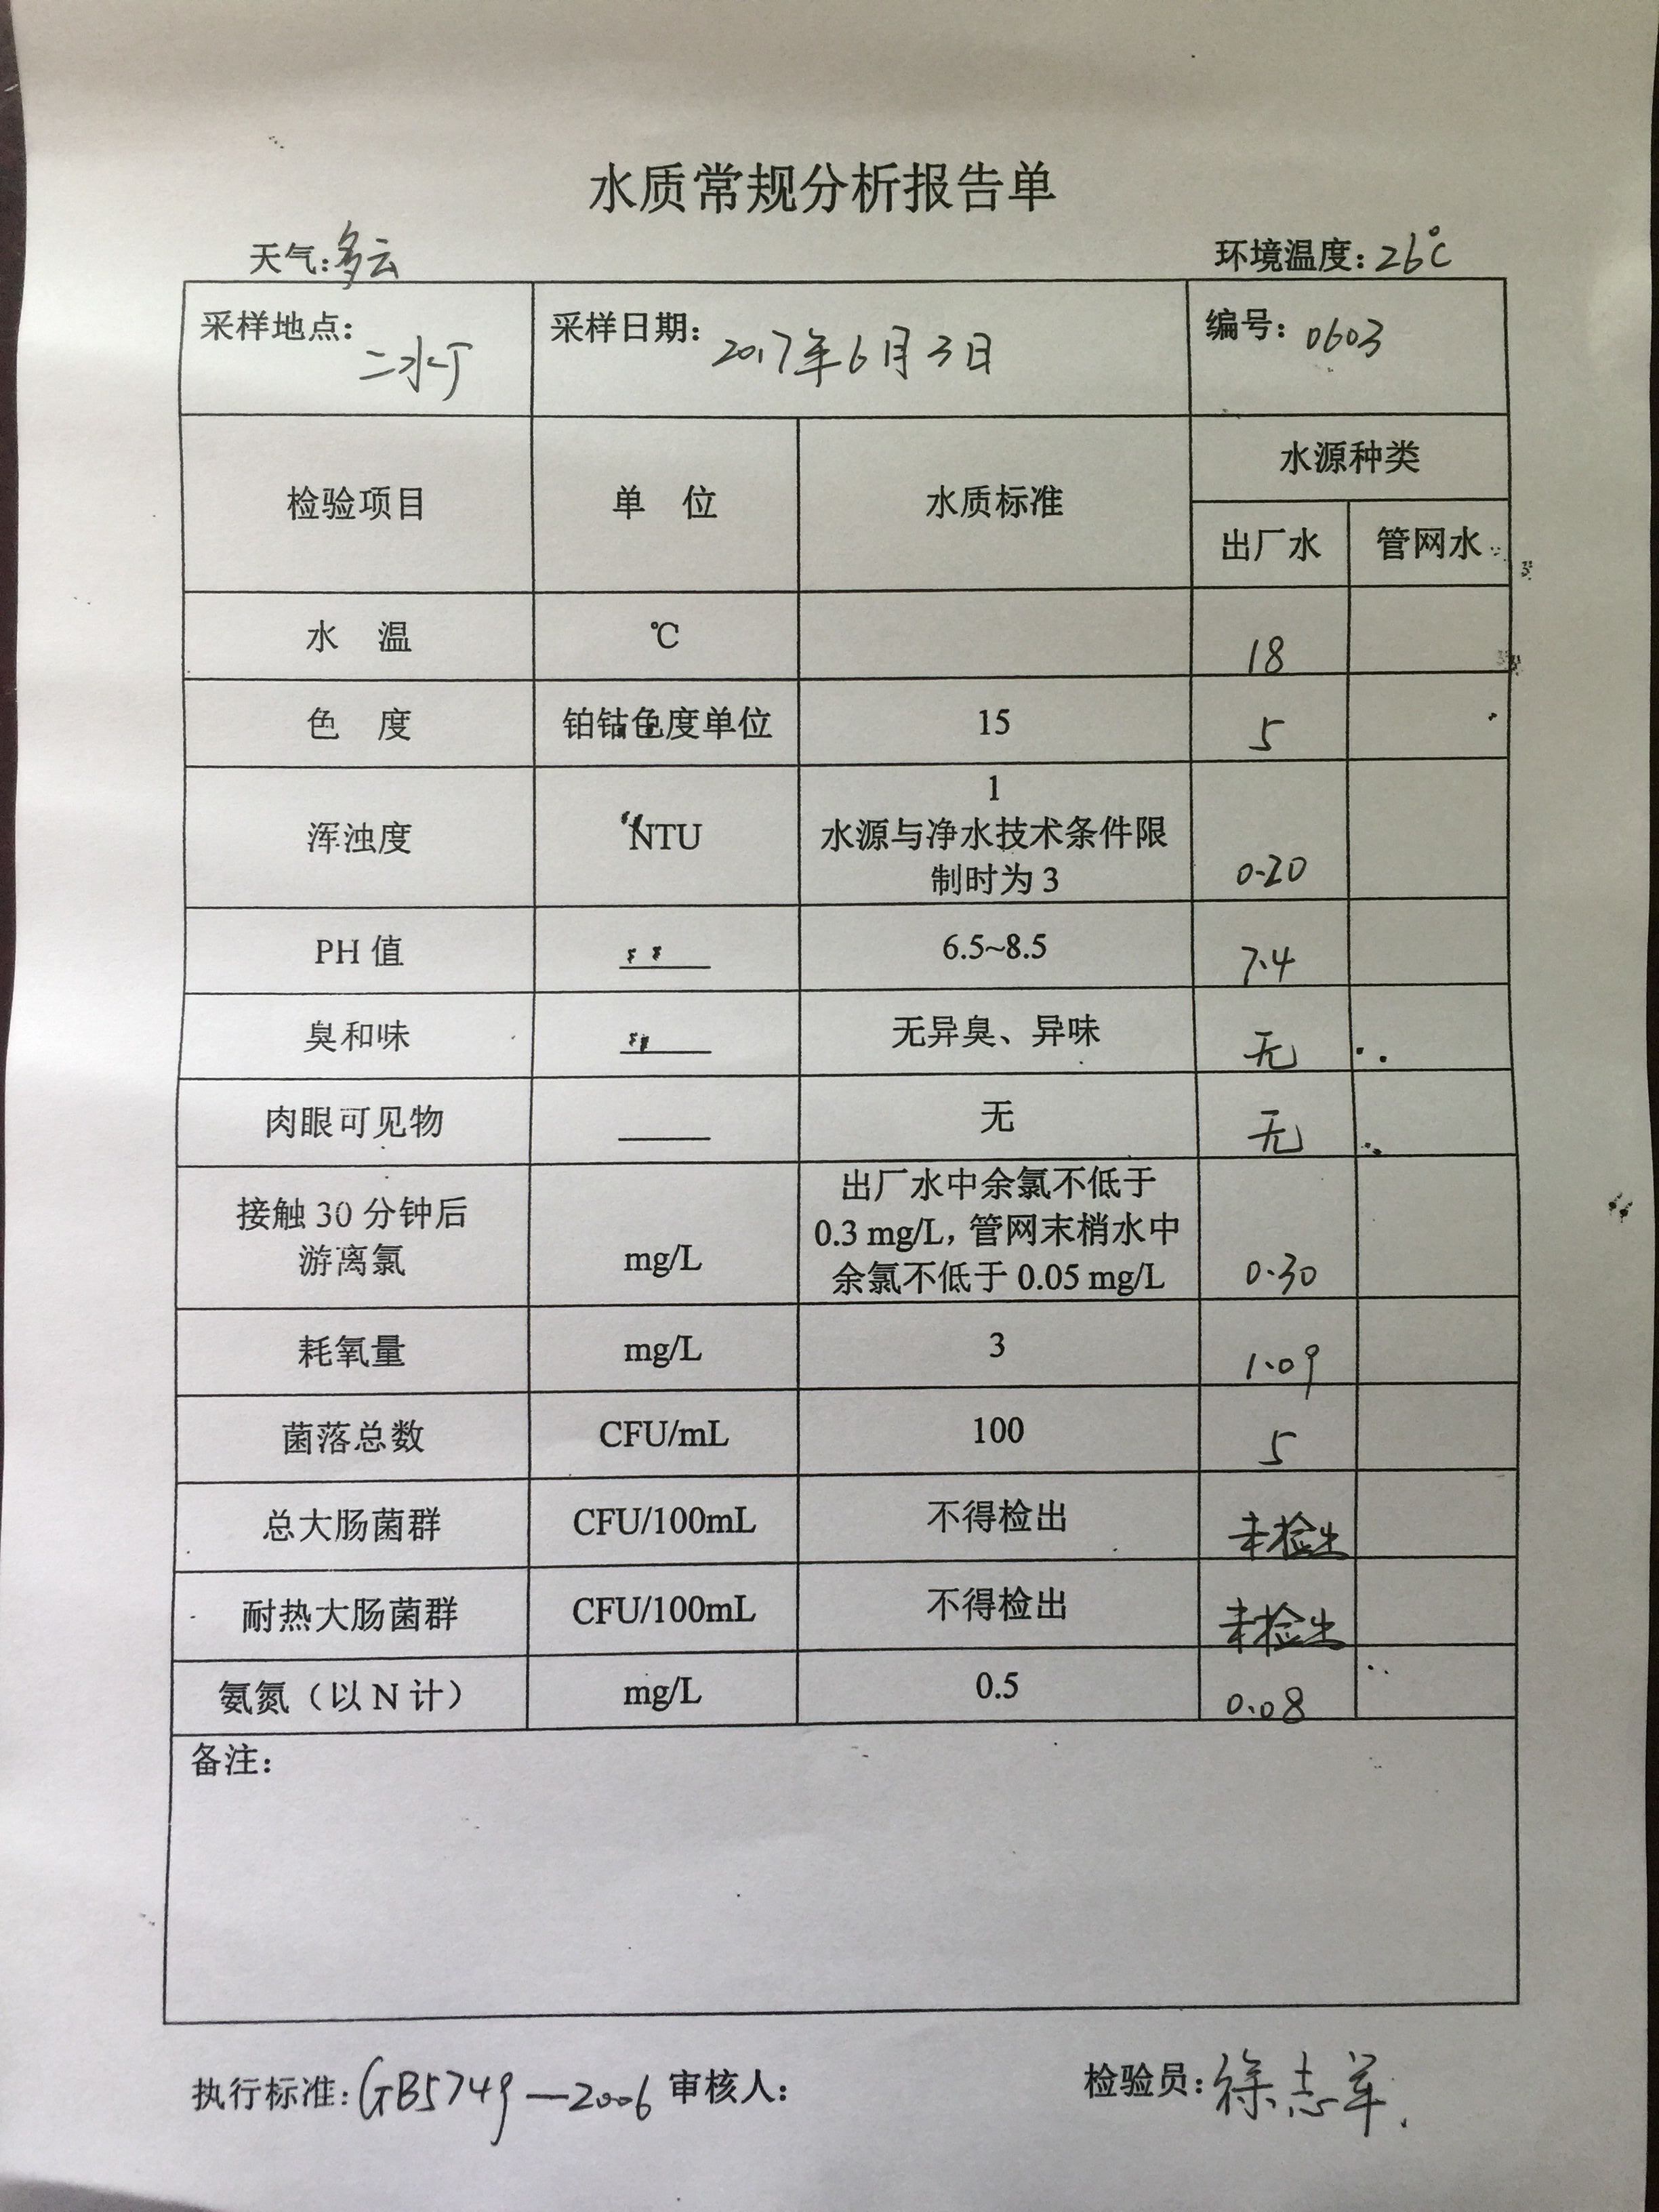 水质常规分析报告单
天气：多云 环境温度：26℃
采样地点：二水厂 采样日期：2017年6月3日 编号：0603
检验项目 单 位 水质标准 水源种类
出厂水 管网水
水 温 ℃ 18
色 度 铂钴色度单位 15 5
浑浊度 NTU 1
水源与净水技术条件限
制时为 3 0.20
PH 值 —— 6.5~8.5 7.4
臭和味 —— 无异臭、异味 无
肉眼可见物 —— 无 无
接触 30 分钟后
游离氯 mg/L 出厂水中余氯不低于
0.3 mg/L，管网末梢水中
余氯不低于 0.05 mg/L 0.30
耗氧量 mg/L 3 1.09
菌落总数 CFU/mL 100 5
总大肠菌群 CFU/100mL 不得检出 未检出
耐热大肠菌群 CFU/100mL 不得检出 未检出
氨氮（以 N 计） mg/L 0.5 0.08
备注：
执行标准：GB5749—2006 审核人： 检验员：徐志军